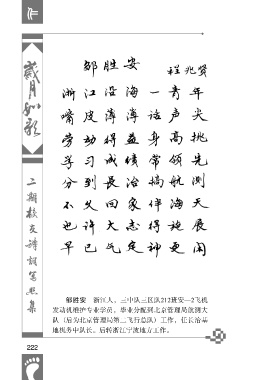 歲月如歌
二期校友诗词写照集
邹胜安
程兆贤
浙江沿海一青年
嘴皮薄薄话声尖
劳动得益身高挑
学习成绩常领先
分到长治搞航测
不久回象伴海天
也许大志得施展
早已气定神更闲
邹胜安 浙江人，三中队三区队212班安—2飞机
发动机维护专业学员，毕业分配到北京管理局航测大
队（后为北京管理局第二飞行总队）工作，任长治基
地机务中队长。后转浙江宁波地方工作。
222